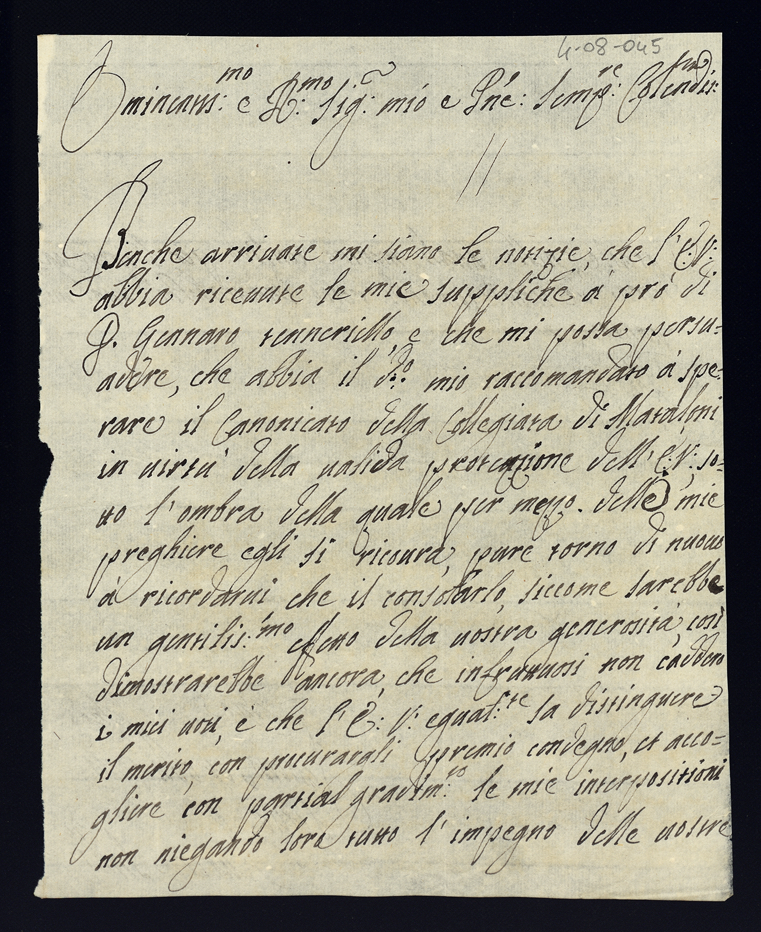 4-08-045
Eminentiss:mo e R:mo Sig:r mio e Pne: Semp:re Colendis:mo
Benche arrivate mi siano le notizie, che l'E:V:
abbia ricevute le mie suppliche á pró di
D. Gennaro Tenneriello, e che mi possa persu-
adere, che abbia il d:o mio raccomandato á spe-
rare il Canonicato della Collegiata di Mataloni
in virtú della valida protezzione dell'E:V: so-
tto l'ombra della quale per mezzo delle mie
preghiere egli si ricovra, pure torno di nuovo
á ricordarvi che il consolarlo, siccome sarebbe
un gentilis:mo effetto della vostra generosità, cosi
dimostrarebbe ancora, che infruttuosi non caddero
i miei voti, e che l'E: V: egual:te sa distinguere
il merito, con procurargli premio condegno, et acco-
gliere con partial gradim:to le mie interpositioni
non niegando loro tutto l'impegno delle vostre